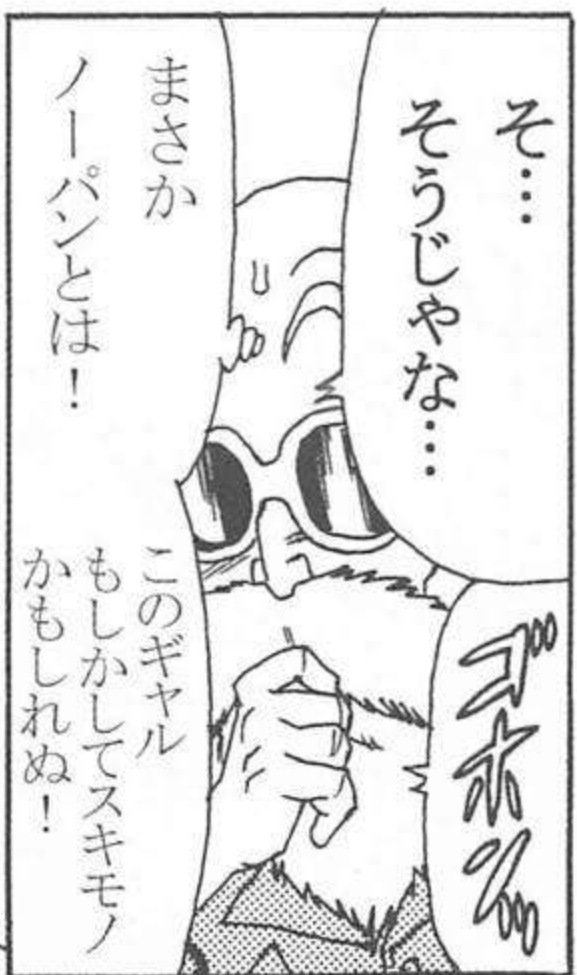 そ…
そうじゃな…
ゴホッ
まさか
ノーパンとは！
このギャル
もしかしてスキモノ
かもしれぬ！